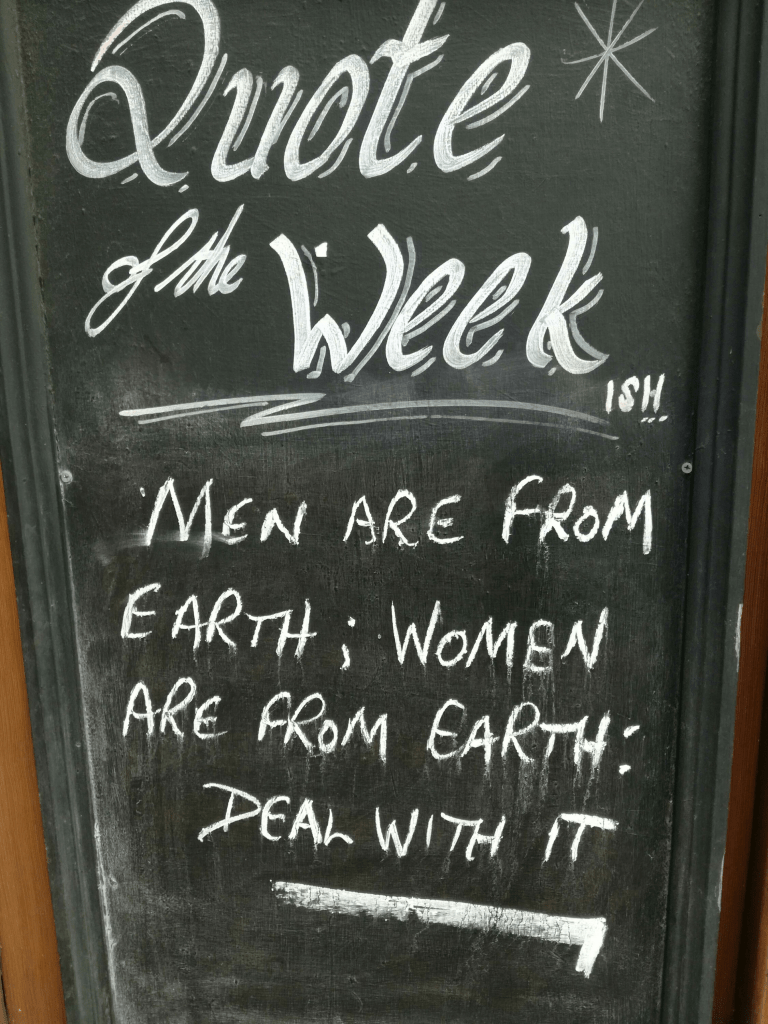 Quote
of the Week
ISH
MEN ARE FROM
EARTH; WOMEN
ARE FROM EARTH:
DEAL WITH IT